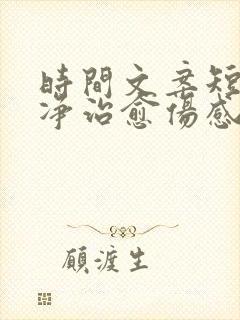 時間文案短
净治愈傷感
願渡生